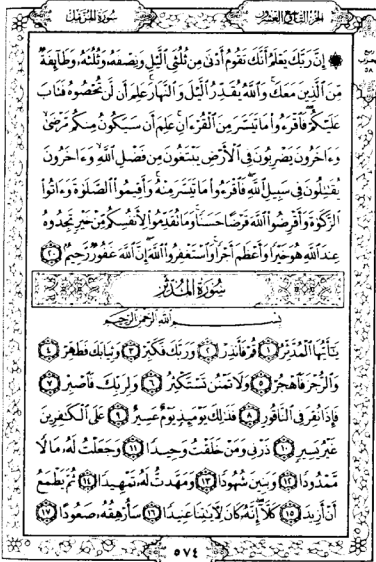 سورة المزمل
الجزء التاسع والعشرون
إِنَّ رَبَّكَ يَعْلَمُ أَنَّكَ تَقُومُ أَدْنَىٰ مِن ثُلُثَيِ ٱلَّيْلِ وَنِصْفَهُۥ وَثُلُثَهُۥ وَطَآئِفَةٌ
مِّنَ ٱلَّذِينَ مَعَكَ ۚ وَٱللَّهُ يُقَدِّرُ ٱلَّيْلَ وَٱلنَّهَارَ ۚ عَلِمَ أَن لَّن تُحْصُوهُ فَتَابَ
عَلَيْكُمْ ۖ فَٱقْرَءُوا۟ مَا تَيَسَّرَ مِنَ ٱلْقُرْءَانِ ۚ عَلِمَ أَن سَيَكُونُ مِنكُم مَّرْضَىٰ ۙ
وَءَاخَرُونَ يَضْرِبُونَ فِى ٱلْأَرْضِ يَبْتَغُونَ مِن فَضْلِ ٱللَّهِ ۙ وَءَاخَرُونَ
يُقَٰتِلُونَ فِى سَبِيلِ ٱللَّهِ ۖ فَٱقْرَءُوا۟ مَا تَيَسَّرَ مِنْهُ ۚ وَأَقِيمُوا۟ ٱلصَّلَوٰةَ وَءَاتُوا۟
ٱلزَّكَوٰةَ وَأَقْرِضُوا۟ ٱللَّهَ قَرْضًا حَسَنًا ۚ وَمَا تُقَدِّمُوا۟ لِأَنفُسِكُم مِّنْ خَيْرٍ تَجِدُوهُ
عِندَ ٱللَّهِ هُوَ خَيْرًا وَأَعْظَمَ أَجْرًا ۚ وَٱسْتَغْفِرُوا۟ ٱللَّهَ ۖ إِنَّ ٱللَّهَ غَفُورٌ رَّحِيمٌۢ ٢٠
سورة المدثر
بسم الله الرحمن الرحيم
يَٰٓأَيُّهَا ٱلْمُدَّثِّرُ ١ قُمْ فَأَنذِرْ ٢ وَرَبَّكَ فَكَبِّرْ ٣ وَثِيَابَكَ فَطَهِّرْ ٤
وَٱلرُّجْزَ فَٱهْجُرْ ٥ وَلَا تَمْنُن تَسْتَكْثِرُ ٦ وَلِرَبِّكَ فَٱصْبِرْ ٧
فَإِذَا نُقِرَ فِى ٱلنَّاقُورِ ٨ فَذَٰلِكَ يَوْمَئِذٍ يَوْمٌ عَسِيرٌ ٩ عَلَى ٱلْكَٰفِرِينَ
غَيْرُ يَسِيرٍ ١٠ ذَرْنِى وَمَنْ خَلَقْتُ وَحِيدًا ١١ وَجَعَلْتُ لَهُۥ مَالًا
مَّمْدُودًا ١٢ وَبَنِينَ شُهُودًا ١٣ وَمَهَّدتُّ لَهُۥ تَمْهِيدًا ١٤ ثُمَّ يَطْمَعُ
أَنْ أَزِيدَ ١٥ كَلَّآ ۖ إِنَّهُۥ كَانَ لِءَايَٰتِنَا عَنِيدًا ١٦ سَأُرْهِقُهُۥ صَعُودًا ١٧
٥٧٤